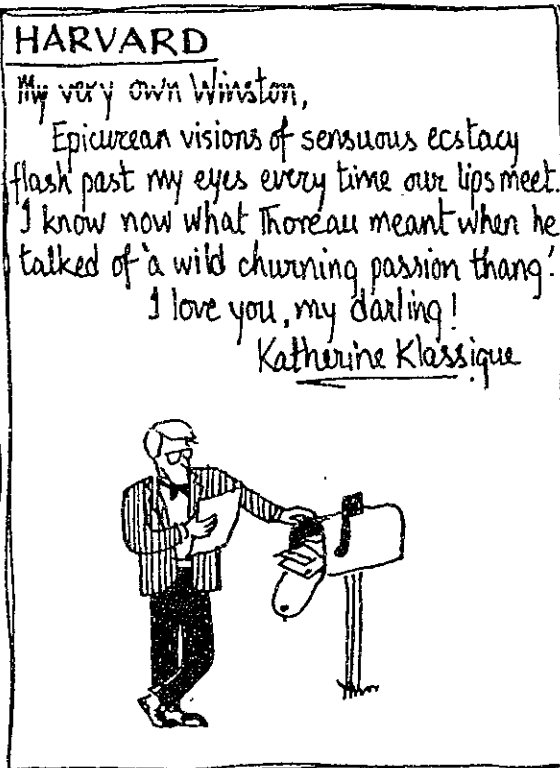 HARVARD
My very own Winston,
Epicurean visions of sensuous ecstacy
flash past my eyes every time our lips meet.
I know now what Thoreau meant when he
talked of 'a wild churning passion thang'.
I love you, my darling!
Katherine Klassique